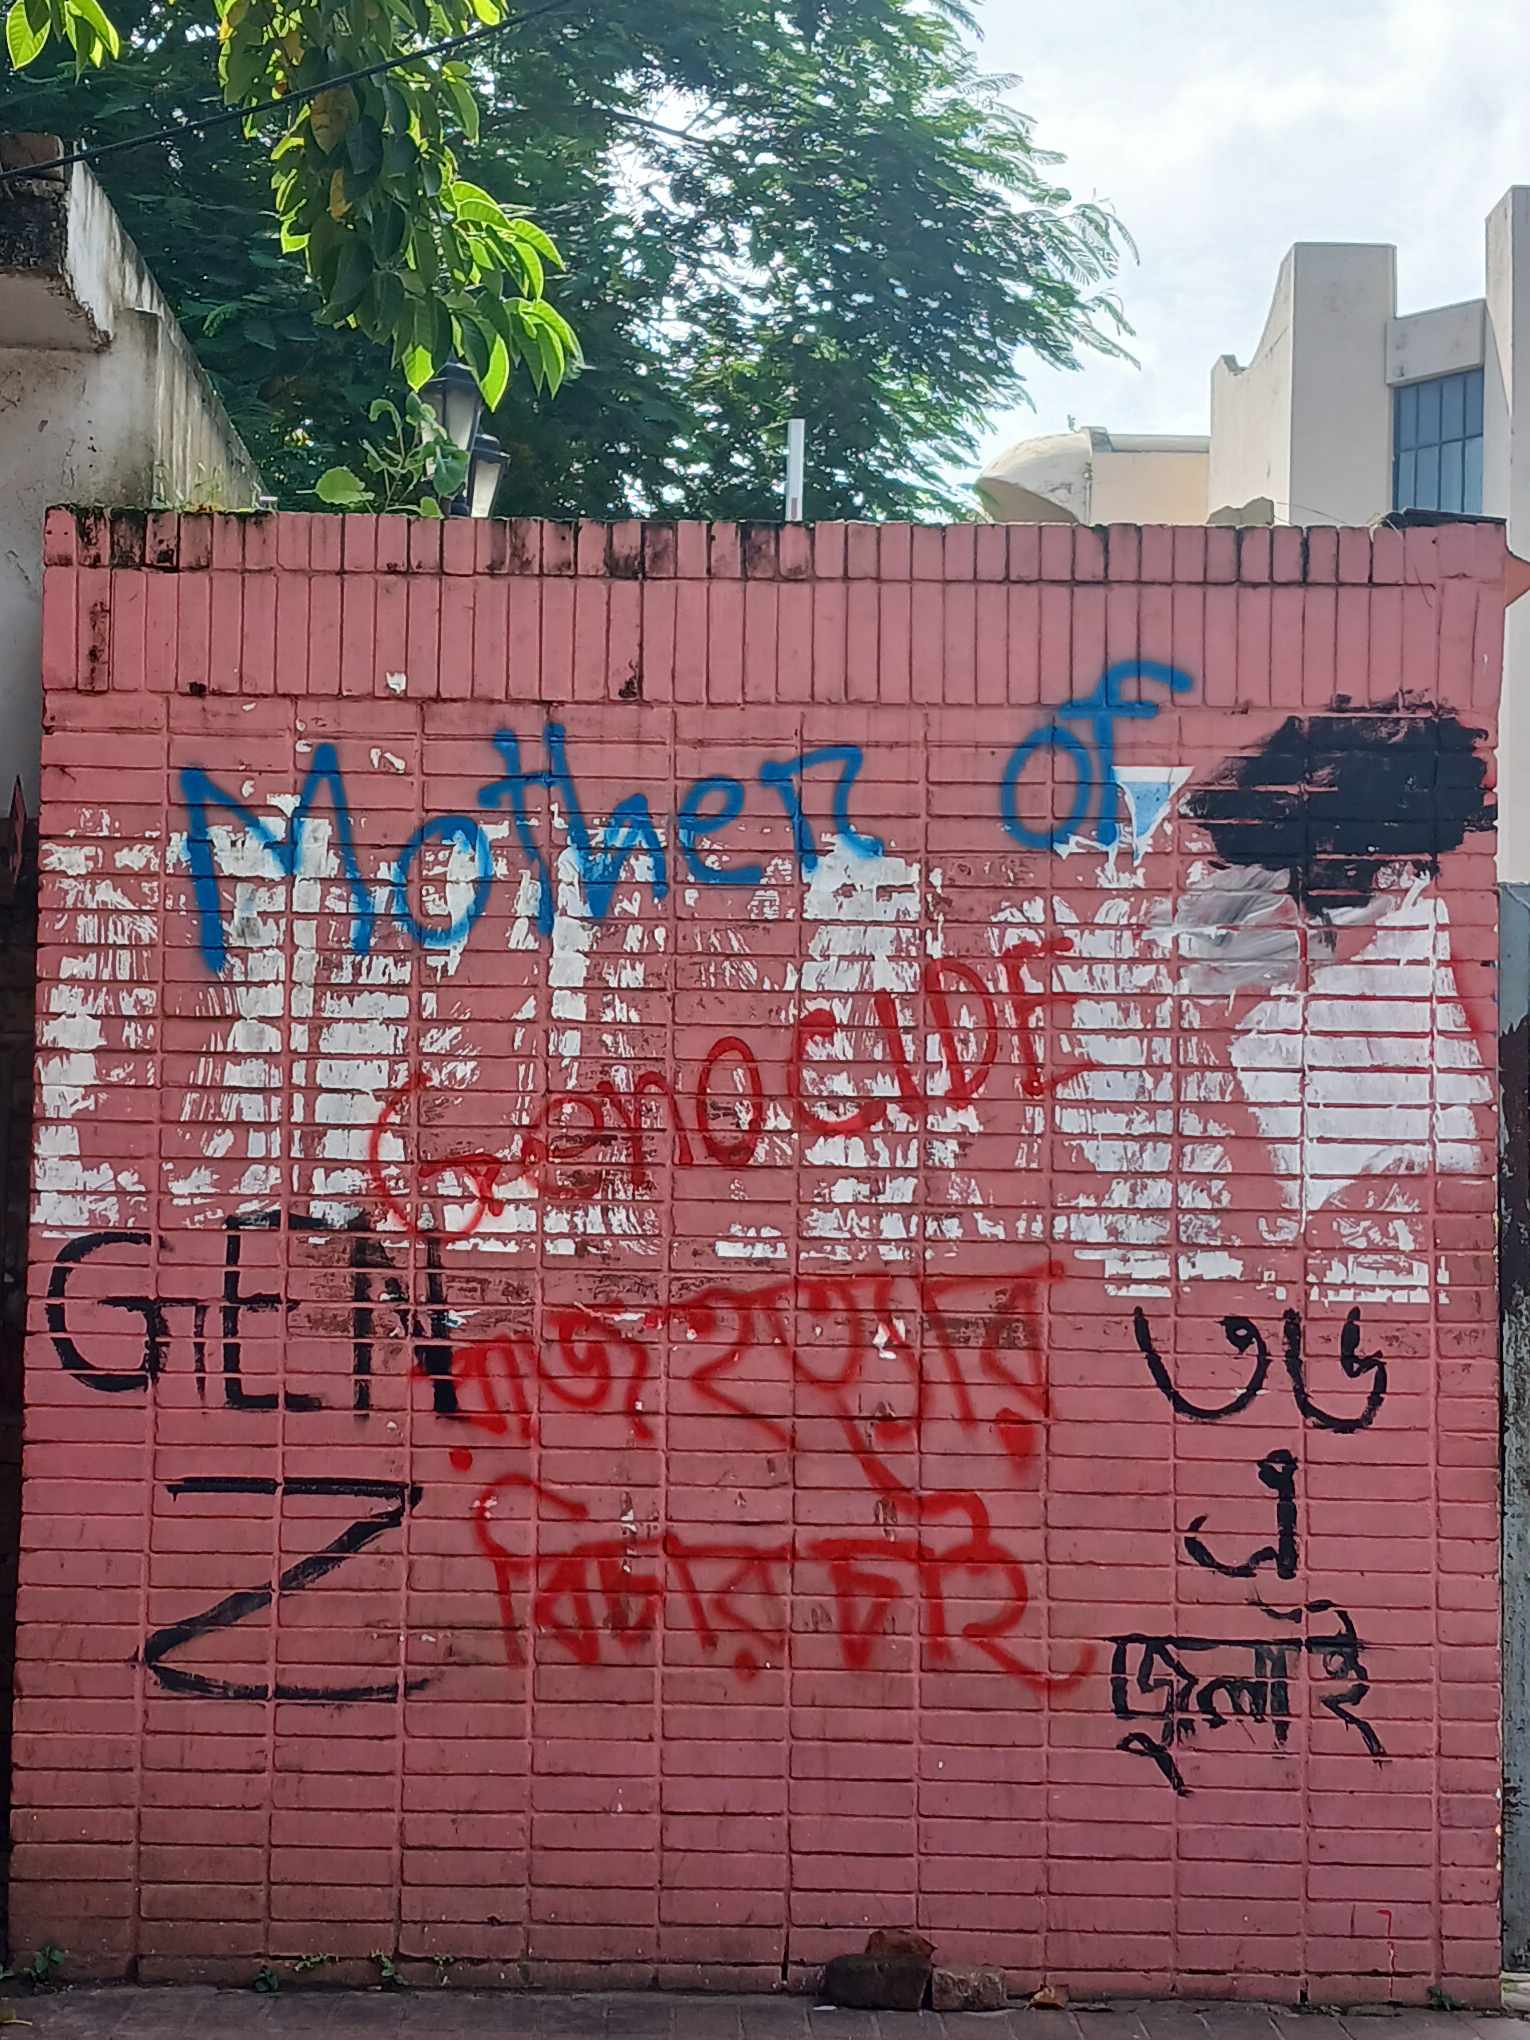 Mother of
GenoCIDE
GEN
Z
রাজ হত্যার
বিচার চাই
৩৬
এ
জুলাই